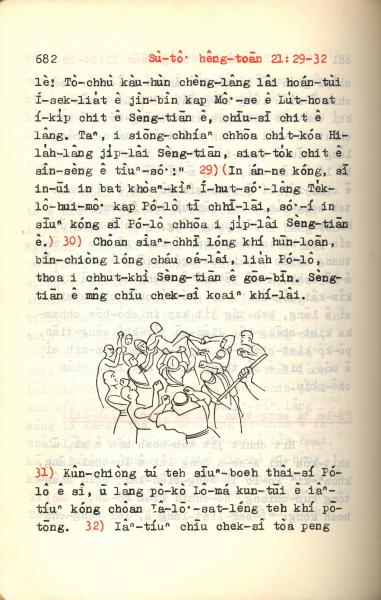 682 Sù-tô· hêng-toān 21:29-32
lè! Tò-chhù kàu-hùn chèng-lâng lâi hoán-tùi
Í-sek-lia̍t ê jîn-bîn kap Mô·-se ê Lu̍t-hoat
í-ki̍p chit ê Sèng-tiān ê, chiū-sī chit ê
lâng. Taⁿ, i siōng-chhíaⁿ chhōa chi̍t-kóa Hi-
la̍h-lâng ji̍p-lâi Sèng-tiān, siat-to̍k chit ê
sîn-sèng ê tiûⁿ-só·!" 29)(In án-ne kóng, sī
in-ūi in bat khòaⁿ-kìⁿ Í-hut-só·-lâng Te̍k-
lô-hui-mô· kap Pó-lô tī chhī-lāi, só·-í in
siūⁿ kóng sī Pó-lô chhōa i ji̍p-lâi Sèng-tiān
ê.) 30) Chôan siâⁿ-chhī lóng khí hūn-loān,
bīn-chiòng lóng cháu oá-lâi, lia̍h Pó-lô,
thoa i chhut-khì Sèng-tiān ê gōa-bīn. Sèng-
tiān ê mn̂g chīu chek-sî koaiⁿ khí-lâi.
31) Kûn-chiòng tú teh sīuⁿ-boeh thâi-sí Pó-
lô ê sî, ū lâng pò-kò Lô-má kun-tūi ê iâⁿ-
tíuⁿ kóng chôan Iâ-lō·-sat-léng teh khí pō-
tōng. 32) Iâⁿ-tíuⁿ chīu chek-sî tòa peng